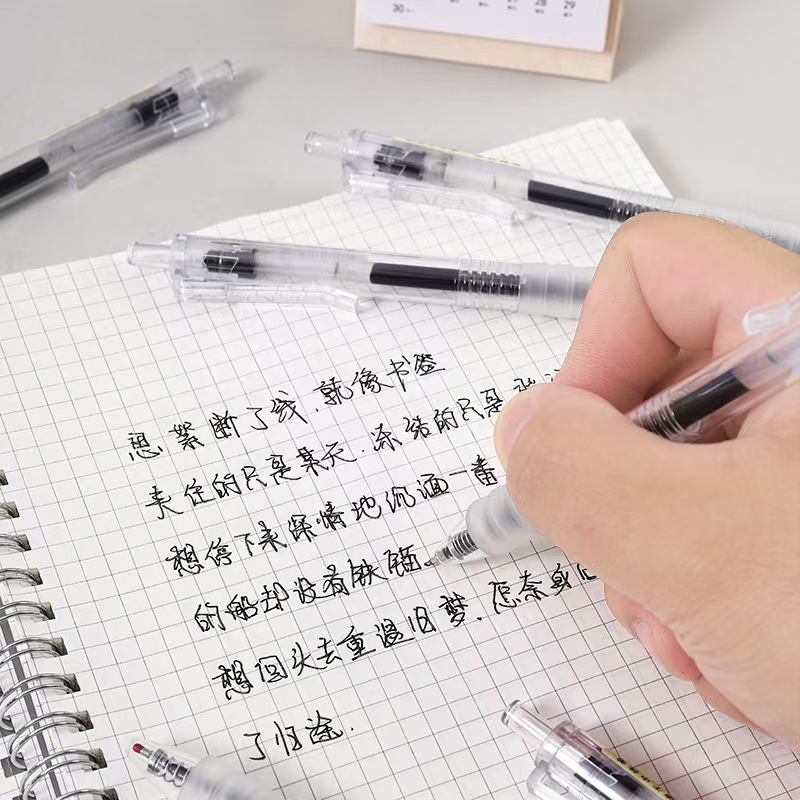 30 28 29
思絮断了线.就像书签
夹住的只是某天.冻结的只是
想停下来深情地沉湎一番
的船却没有铁锚
想回头去重温旧梦.怎奈身
了归途.